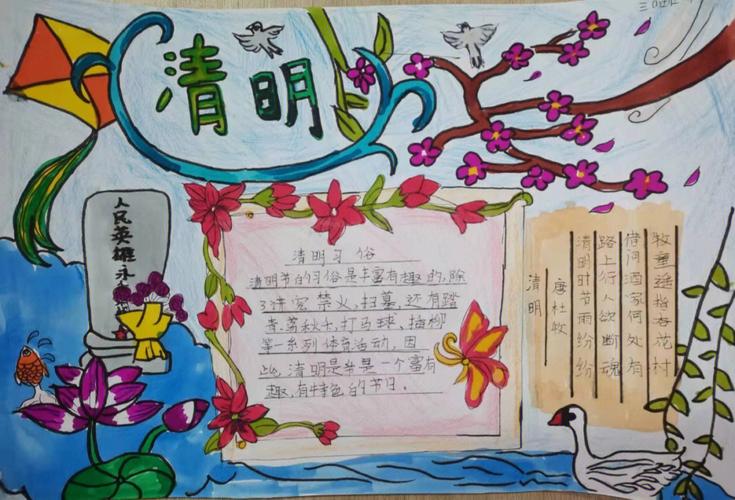 清明
人民英雄永
清明习俗
清明节的习俗是丰富有趣的,除
了讲究禁火、扫墓,还有踏
青、荡秋千、打马球、插柳
等一系列体育活动。因
此,清明是节是一个富有
趣,有特色的节日。
清明
唐杜牧
清明时节雨纷纷
路上行人欲断魂
借问酒家何处有
牧童遥指杏花村